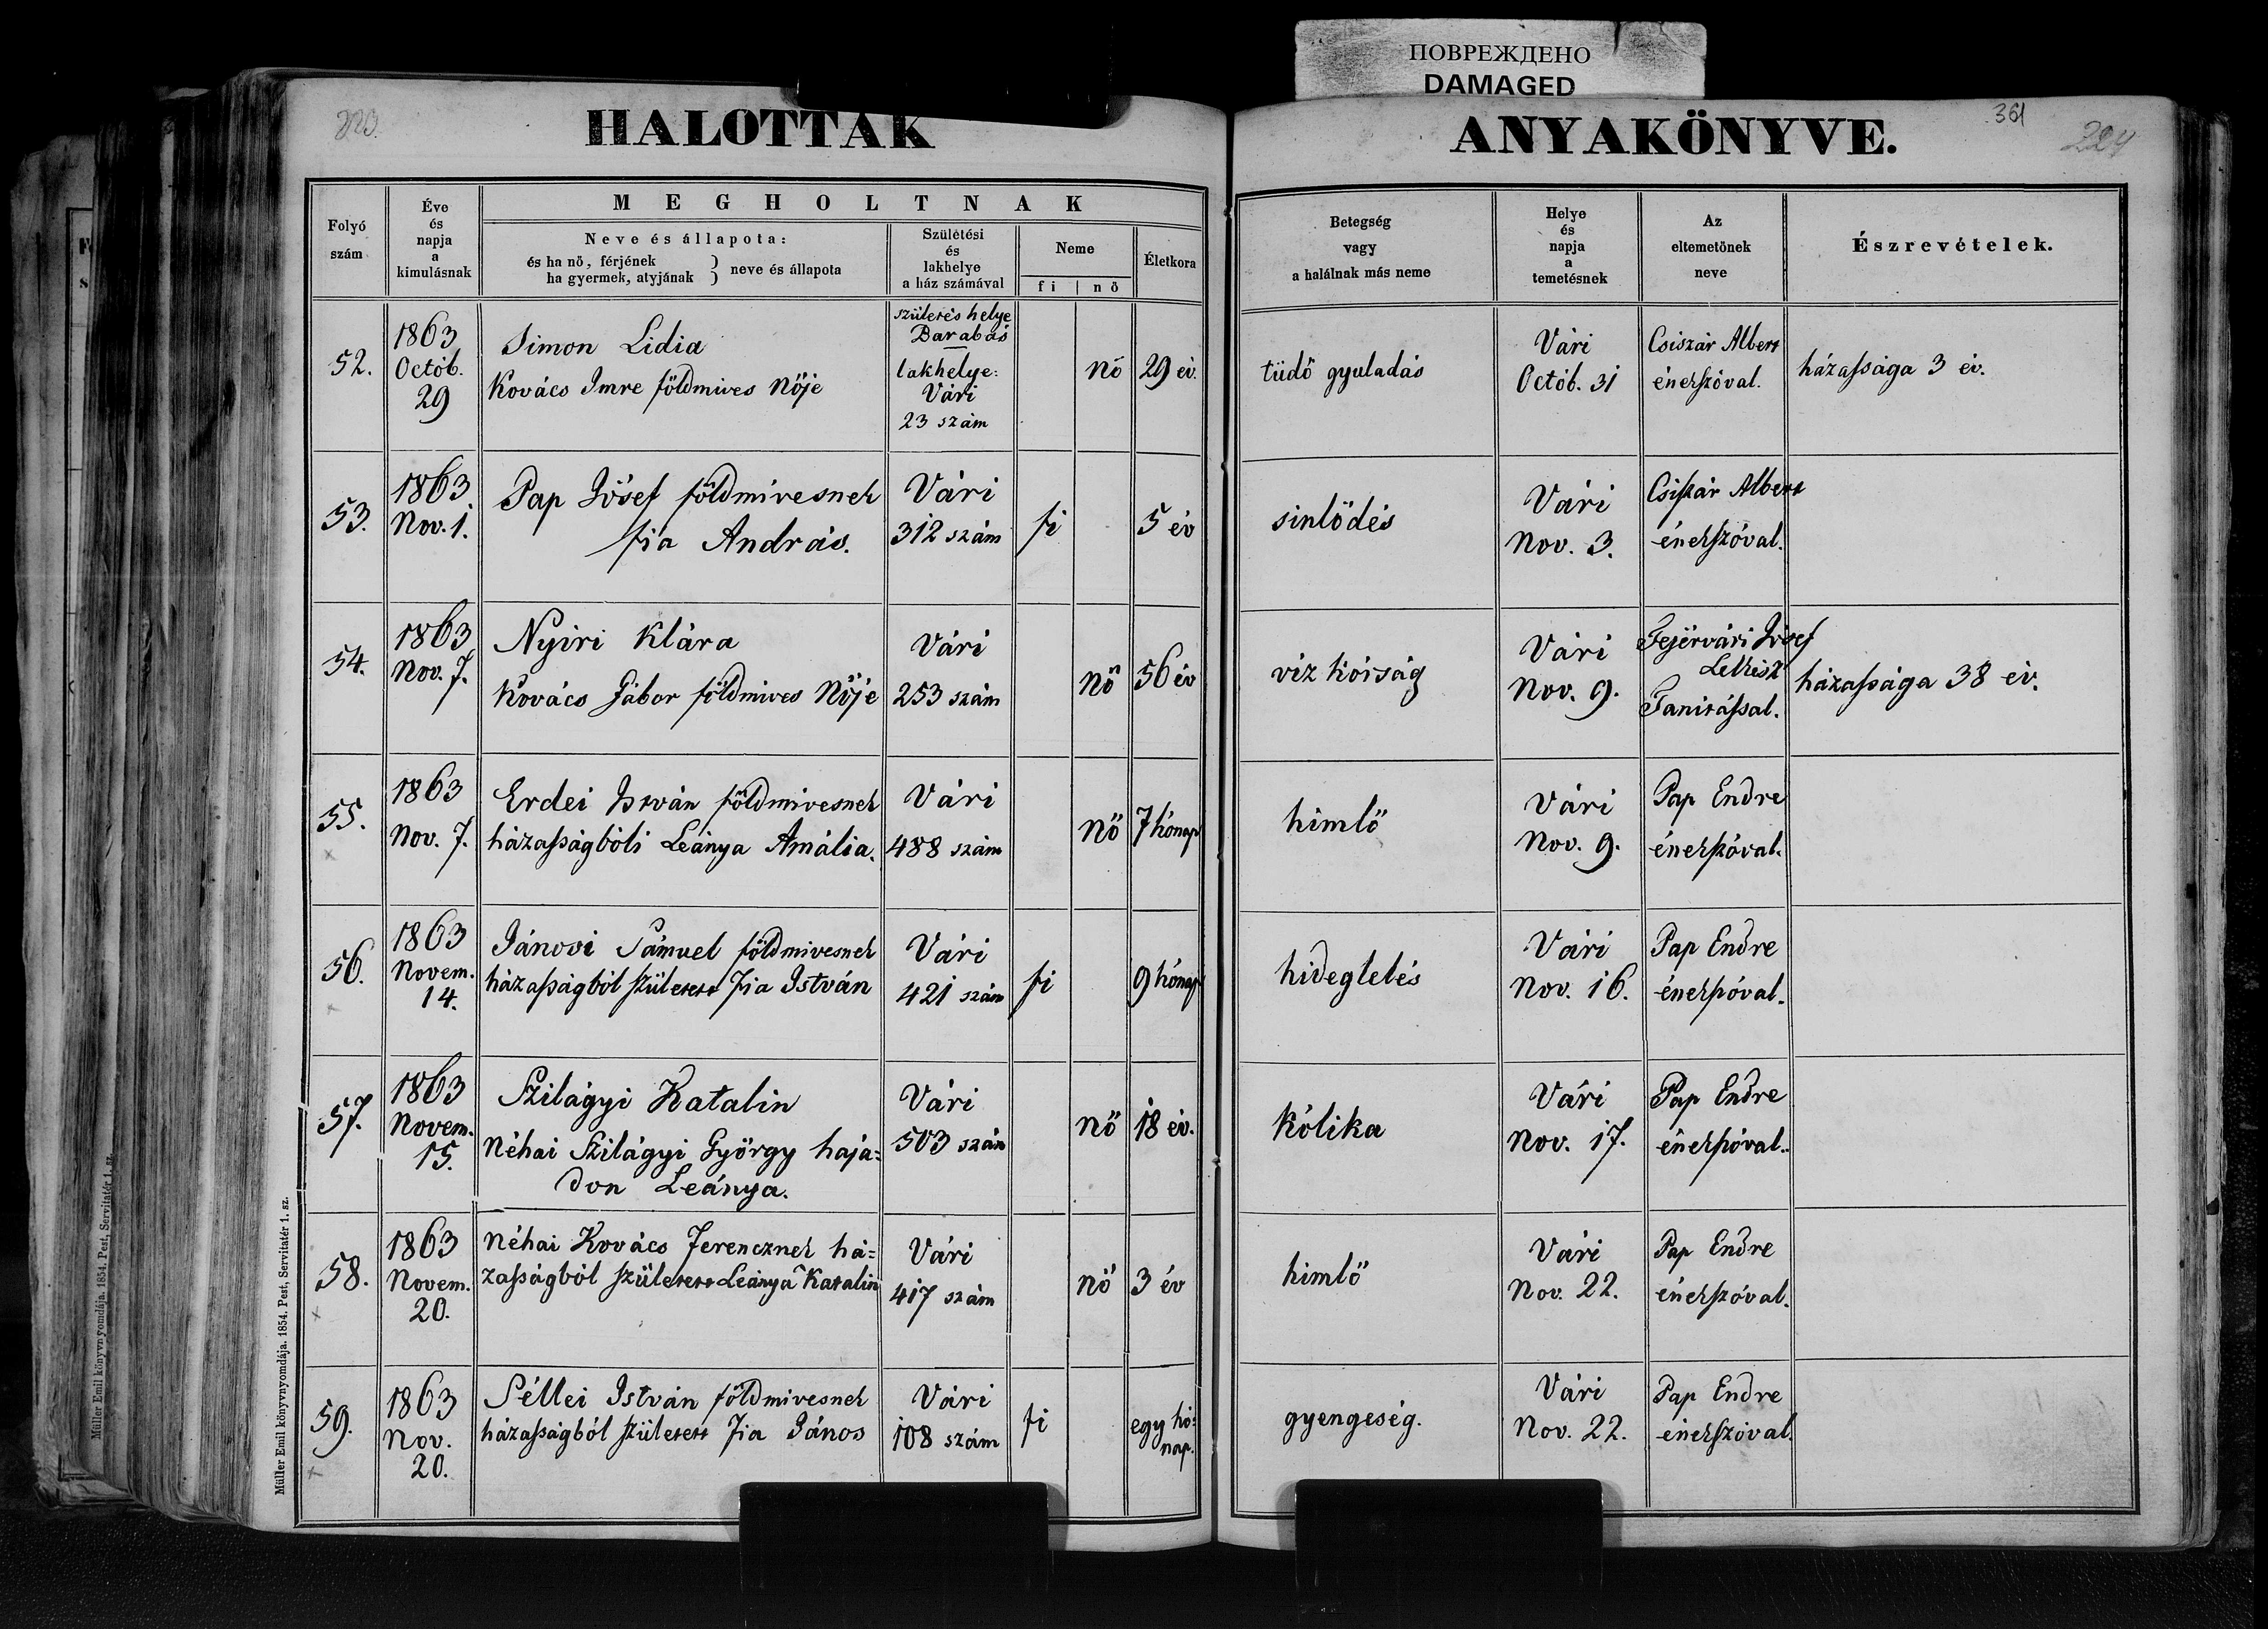 ПОВРЕЖДЕНО
DAMAGED
HALOTTAK
ANYAKÖNYVE.
361
224
Folyó
szám
Éve
és
napja
a
kimulásnak
MEGHOLTNAK
Neve és állapota:
és ha nő, férjének
ha gyermek, atyjának
neve és állapota
Születési
és
lakhelye
a ház számával
Neme
fi | nő
Életkora
Betegség
vagy
a halálnak más neme
Helye
és
napja
a
temetésnek
Az
eltemetőnek
neve
Észrevételek.
52.
1863
Octób.
29
Simon Lidia
Kovács Imre földmives Nője
születés helye
Barabás
lakhelye:
Vári
23 szám
nő
29 év.
tüdő gyuladás
Vári
Octób. 31
Csiszár Albert
énekszóval.
házassága 3 év.
53.
1863
Nov. 1.
Pap Jósef földmivesnek
fia András.
Vári
312 szám
fi
5 év
sinlődés
Vári
Nov. 3.
Csiszár Albert
énekszóval.
54.
1863
Nov. 7.
Nyiri Klára
Kovács Gábor földmives Nője
Vári
253 szám
nő
56 év
viz kórság
Vári
Nov. 9.
Fejérvári Jósef
Lelkész
Tanitással.
házassága 38 év.
55.
1863
Nov. 7.
Erdei István földmivesnek
házasságbóli Leánya Amália.
Vári
488 szám
nő
7 hónap
himlő
Vári
Nov. 9.
Pap Endre
énekszóval.
56.
1863
Novem.
14.
Jánosi Sámuel földmivesnek
házasságból született fia István
Vári
421 szám
fi
9 hónap
hideglelés
Vári
Nov. 16.
Pap Endre
énekszóval.
57.
1863
Novem.
15.
Szilágyi Katalin
Néhai Szilágyi György hajá=
don Leánya.
Vári
503 szám
nő
18 év.
kólika
Vári
Nov. 17.
Pap Endre
énekszóval.
58.
1863
Novem.
20.
Néhai Kovács Ferencznek há=
zasságból született Leánya Katalin
Vári
417 szám
nő
3 év
himlő
Vári
Nov. 22.
Pap Endre
énekszóval.
59.
1863
Nov.
20.
Séllei István földmivesnek
házasságból született fia János
Vári
108 szám
fi
egy hó=
nap.
gyengeség.
Vári
Nov. 22.
Pap Endre
énekszóval.
Müller Emil könyvnyomdája. 1854. Pest, Servitatér 1. sz.
Müller Emil könyvnyomdája. 1854. Pest, Servitatér 1. sz.